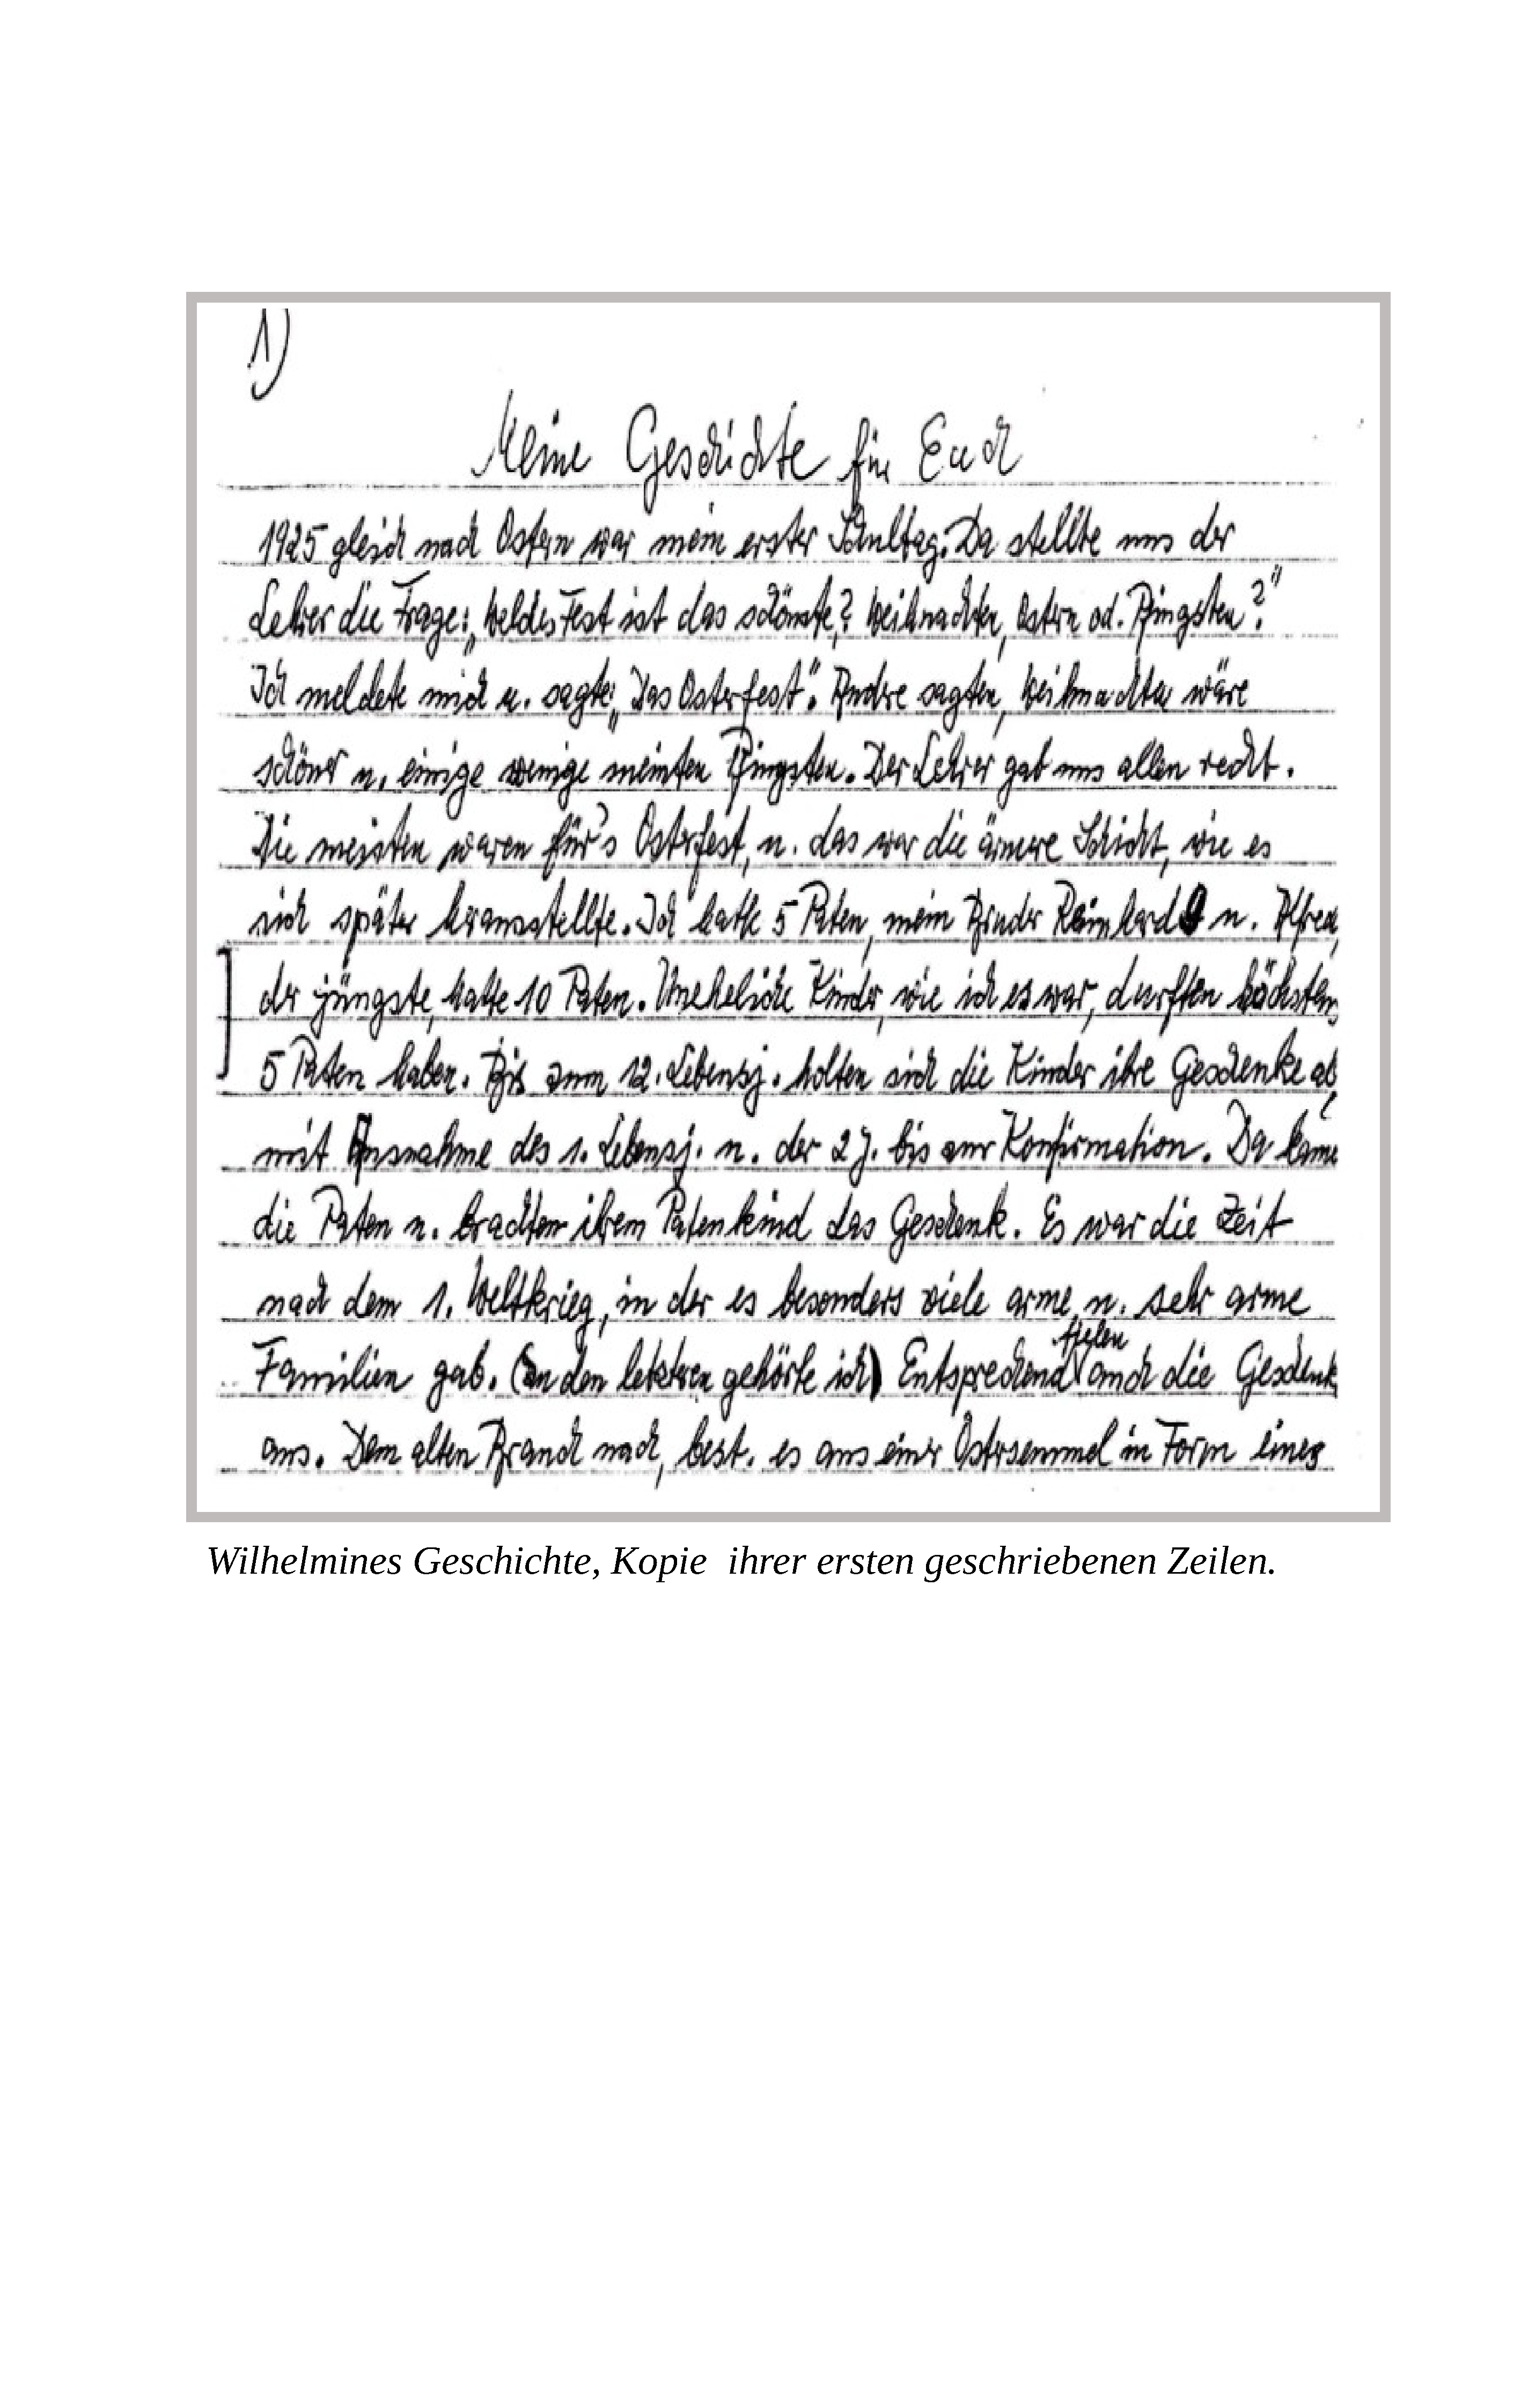 1)
Meine Geschichte für Euch
1925 gleich nach Ostern war mein erster Schultag. Da stellte uns der
Lehrer die Frage: „Welches Fest ist das schönste,? Weihnachten, Ostern od. Pfingsten?"
Ich meldete mich u. sagte: „Das Osterfest". Andre sagten, Weihnachten wäre
schöner u. einige wenige meinten Pfingsten. Der Lehrer gab uns allen recht.
Die meisten waren für's Osterfest, u. das war die ärmere Schicht, wie es
sich später herausstellte. Ich hatte 5 Paten, mein Bruder Reinhard u. Alfred,
der jüngste, hatte 10 Paten. Uneheliche Kinder, wie ich es war, durften höchstens
5 Paten haben. Bis zum 12. Lebensj. holten sich die Kinder ihre Geschenke ab,
mit Ausnahme des 1. Lebensj. u. der 2 J. bis zur Konfirmation. Da kame
die Paten u. brachten ihrem Patenkind das Geschenk. Es war die Zeit
nach dem 1. Weltkrieg, in der es besonders viele arme u. sehr arme
Familien gab. (Zu den letzteren gehörte ich) Entsprechend fielen auch die Geschenk
aus. Dem alten Brauch nach, best. es aus einer Ostersemmel in Form eines
Wilhelmines Geschichte, Kopie ihrer ersten geschriebenen Zeilen.